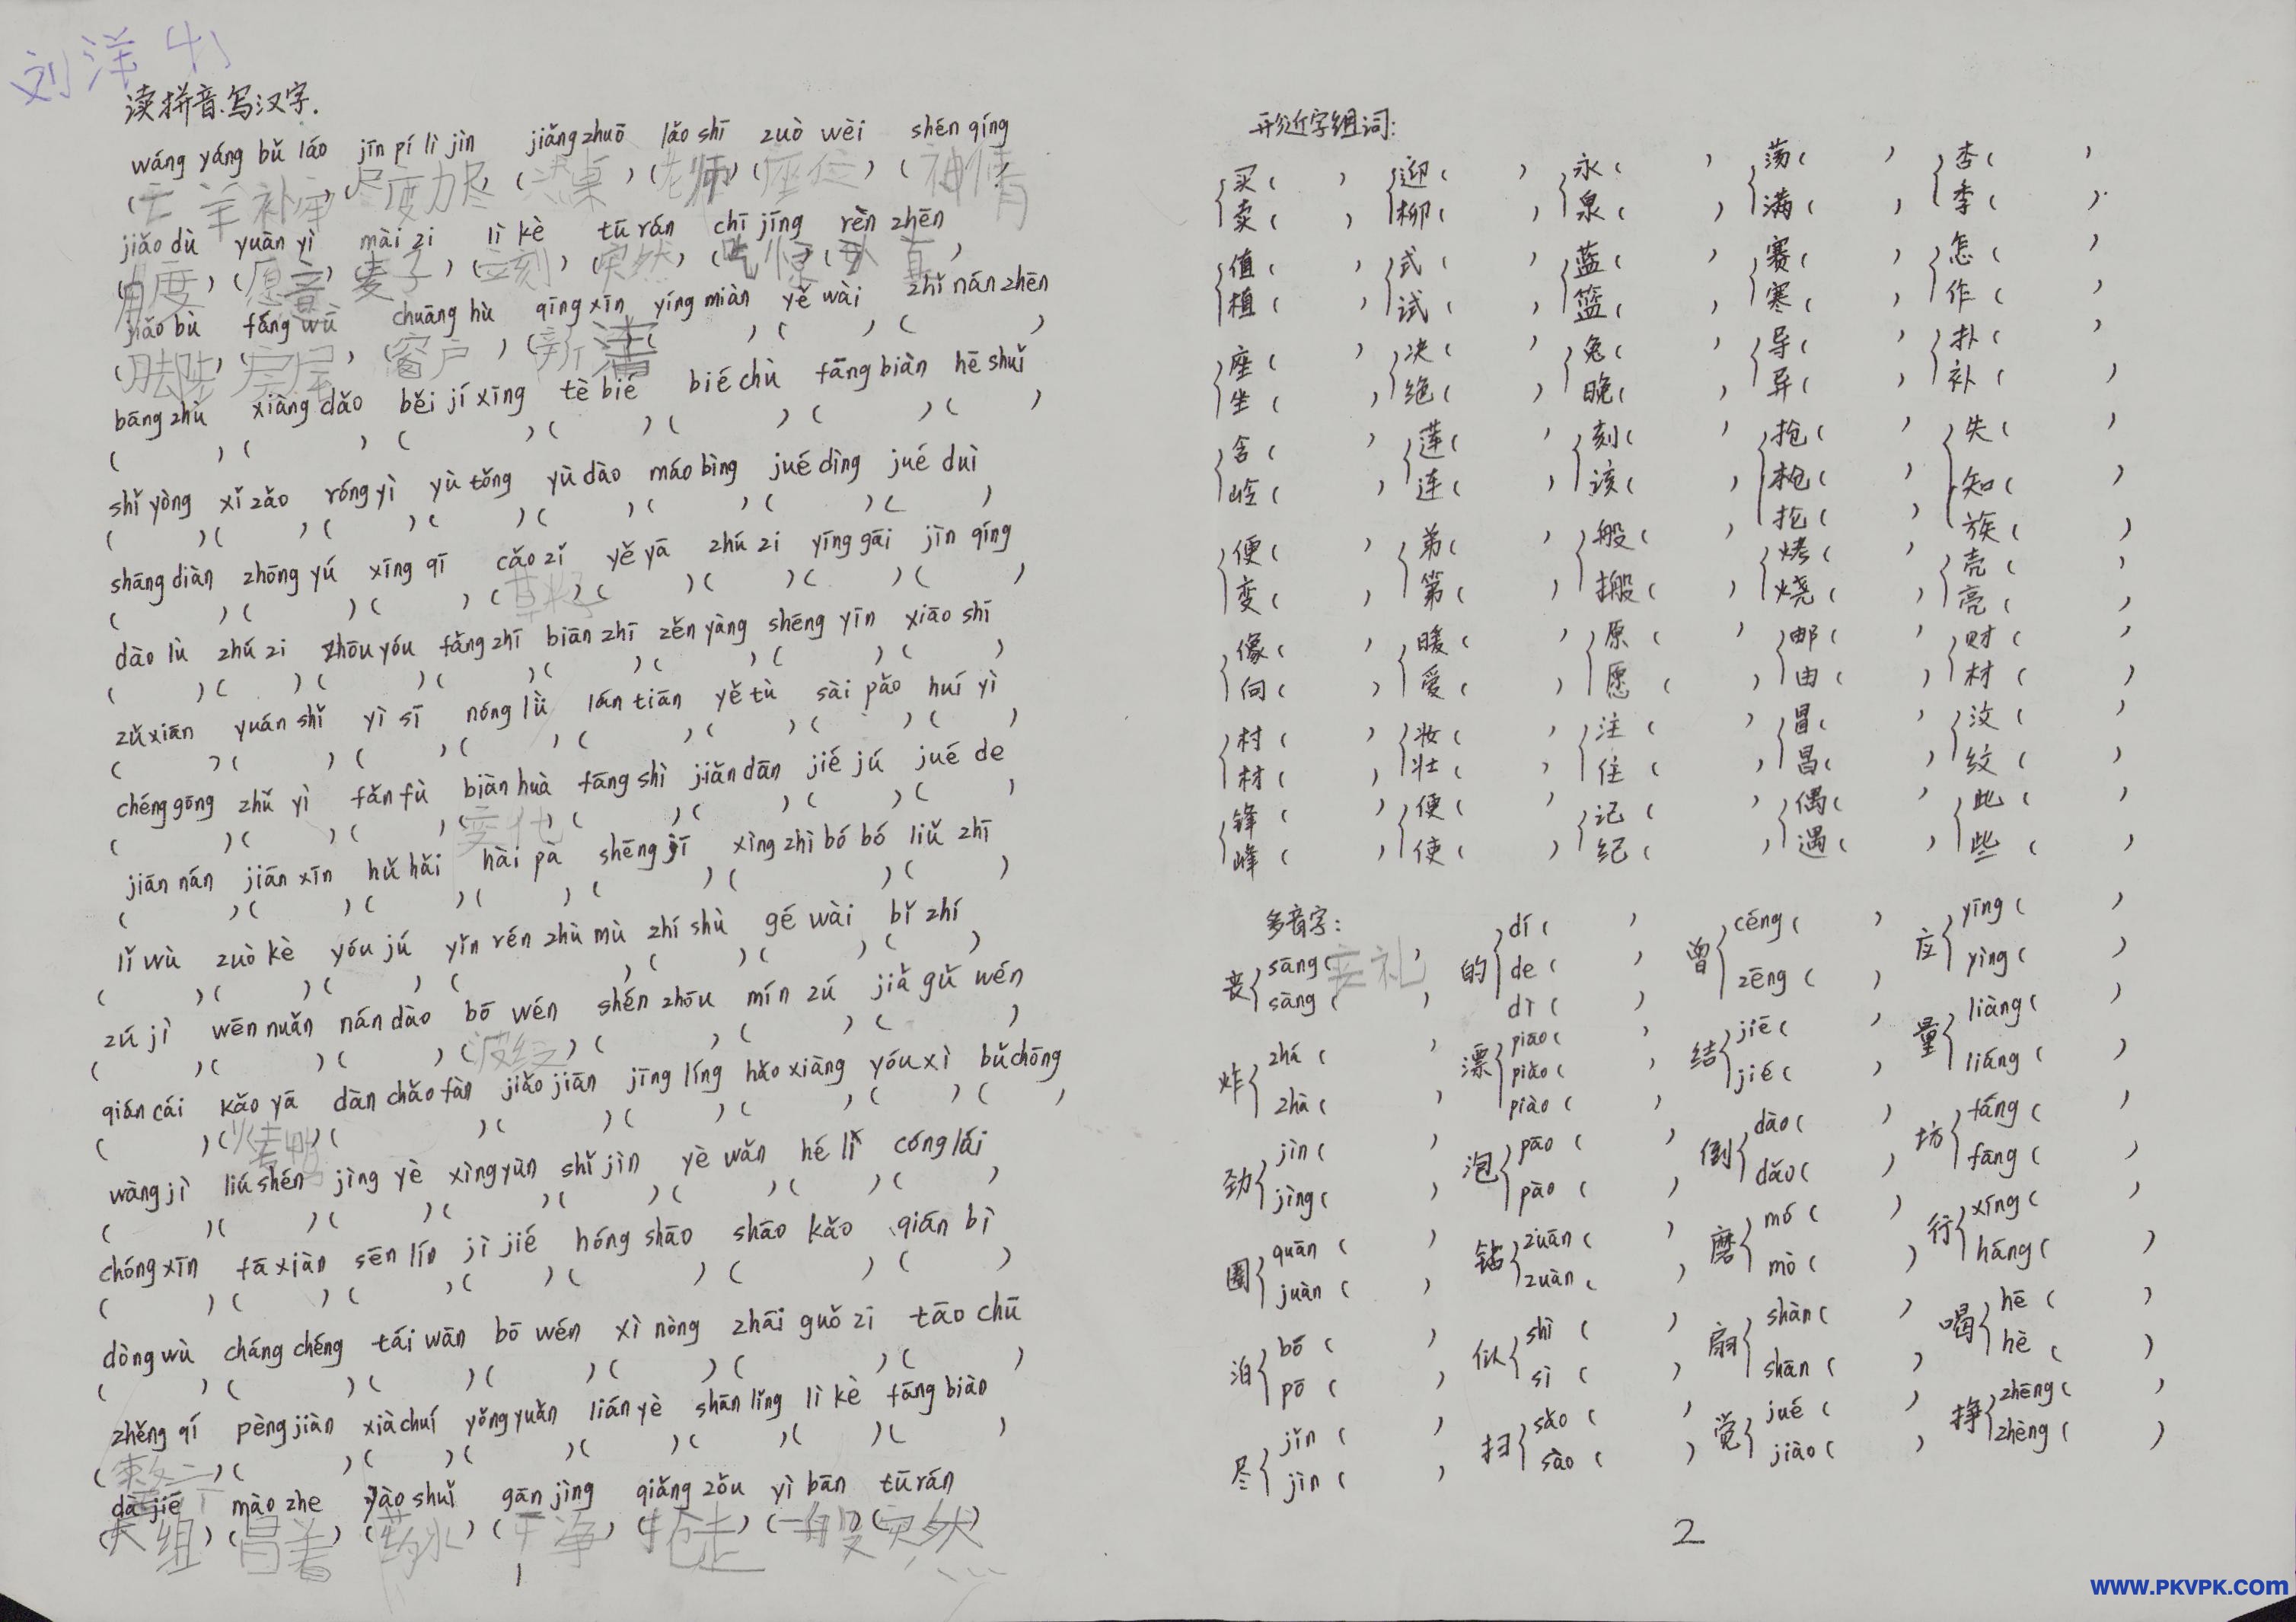 刘洋
读拼音.写汉字.
wáng yáng bǔ láo jīn pí lì jìn jiǎng zhuō lǎo shī zuò wèi shén qíng
(亡羊补牢) (尽疲力尽) ( 桌) (老师) (座位) (神情)
jiǎo dù yuàn yì mài zi lì kè tū rán chī jīng rèn zhēn
(角度) (愿意) (麦子) (立刻) (突然) (吃惊) ( 真)
jiǎo bù fáng wū chuāng hù qīng xīn yíng miàn yě wài zhǐ nán zhēn
(脚步) (房屋) (窗户) (新清) ( ) ( ) ( )
bāng zhù xiàng dǎo běi jí xīng tè bié bié chù fāng biàn hē shuǐ
( ) ( ) ( ) ( ) ( ) ( ) ( )
shǐ yòng xǐ zǎo róng yì yù tǒng yù dào máo bìng jué dìng jué duì
( ) ( ) ( ) ( ) ( ) ( ) ( ) ( )
shāng diàn zhōng yú xīng qī cǎo zǐ yě yā zhú zi yīng gāi jìn qíng
( ) ( ) ( ) (草籽) ( ) ( ) ( ) ( )
dào lù zhú zi zhōu yóu fǎng zhī biān zhī zěn yàng shēng yīn xiāo shī
( ) ( ) ( ) ( ) ( ) ( ) ( ) ( )
zǔ xiān yuán shǐ yì sī nóng lǜ lán tiān yě tù sài pǎo huí yì
( ) ( ) ( ) ( ) ( ) ( ) ( ) ( )
chéng gōng zhǔ yì fǎn fù biàn huà fāng shì jiǎn dān jié jú jué de
( ) ( ) ( ) (变化) ( ) ( ) ( ) ( )
jiān nán jiān xīn hǔ hǎi hài pà shēng jī xìng zhì bó bó liǔ zhī
( ) ( ) ( ) ( ) ( ) ( ) ( )
lǐ wù zuò kè yóu jú yǐn rén zhù mù zhí shù gé wài bǐ zhí
( ) ( ) ( ) ( ) ( ) ( ) ( )
zú jì wēn nuǎn nán dào bō wén shén zhōu mín zú jiǎ gǔ wén
( ) ( ) ( ) (波纹) ( ) ( ) ( )
qián cái kǎo yā dàn chǎo fàn jiǎo jiān jīng líng hǎo xiàng yóu xì bǔ chōng
( ) (烤鸭) ( ) ( ) ( ) ( ) ( ) ( )
wàng jì liú shén jìng yè xìng yùn shǐ jìn yè wǎn hé lǐ cóng lái
( ) ( ) ( ) ( ) ( ) ( ) ( ) ( )
chóng xīn fā xiàn sēn lín jì jié hóng shāo shāo kǎo qián bì
( ) ( ) ( ) ( ) ( ) ( ) ( )
dòng wù cháng chéng tái wān bō wén xì nòng zhāi guǒ zi tāo chū
( ) ( ) ( ) ( ) ( ) ( ) ( )
zhěng qí pèng jiàn xià chuí yǒng yuǎn lián yè shān lǐng lì kè fāng biàn
(整齐) ( ) ( ) ( ) ( ) ( ) ( ) ( )
dà jiē mào zhe yào shuǐ gān jìng qiǎng zǒu yì bān tū rán
(大组) (冒着) (药水) (干净) (抢走) (一般) (突然)
1
形近字组词:
买( ) 迎( ) 永( ) 荡( ) 杏( )
卖( ) 柳( ) 泉( ) 满( ) 季( )
值( ) 式( ) 蓝( ) 赛( ) 怎( )
植( ) 试( ) 篮( ) 寒( ) 作( )
座( ) 决( ) 兔( ) 导( ) 扑( )
坐( ) 绝( ) 晚( ) 异( ) 补( )
含( ) 莲( ) 刻( ) 抢( ) 失( )
岭( ) 连( ) 该( ) 枪( ) 知( )
抡( ) 族( )
便( ) 弟( ) 般( ) 烤( ) 壳( )
变( ) 第( ) 搬( ) 烧( ) 亮( )
像( ) 暖( ) 原( ) 邮( ) 财( )
向( ) 爱( ) 愿( ) 由( ) 材( )
村( ) 妆( ) 注( ) 冒( ) 汶( )
材( ) 壮( ) 住( ) 昌( ) 纹( )
锋( ) 便( ) 记( ) 偶( ) 此( )
峰( ) 使( ) 纪( ) 遇( ) 些( )
多音字:
丧 sāng(丧礼) sàng( ) 的 dí( ) de( ) dì( ) 曾 céng( ) zēng( ) 应 yīng( ) yìng( )
炸 zhá( ) zhà( ) 漂 piāo( ) piǎo( ) piào( ) 结 jiē( ) jié( ) 量 liàng( ) liáng( )
劲 jìn( ) jìng( ) 泡 pāo( ) pào( ) 倒 dào( ) dǎo( ) 坊 fáng( ) fāng( )
圈 quān( ) juàn( ) 钻 zuān( ) zuàn( ) 磨 mó( ) mò( ) 行 xíng( ) háng( )
泊 bó( ) pō( ) 似 shì( ) sì( ) 扇 shàn( ) shān( ) 喝 hē( ) hè( )
尽 jǐn( ) jìn( ) 扫 sǎo( ) sào( ) 觉 jué( ) jiào( ) 挣 zhēng( ) zhèng( )
2
www.PKVPK.com